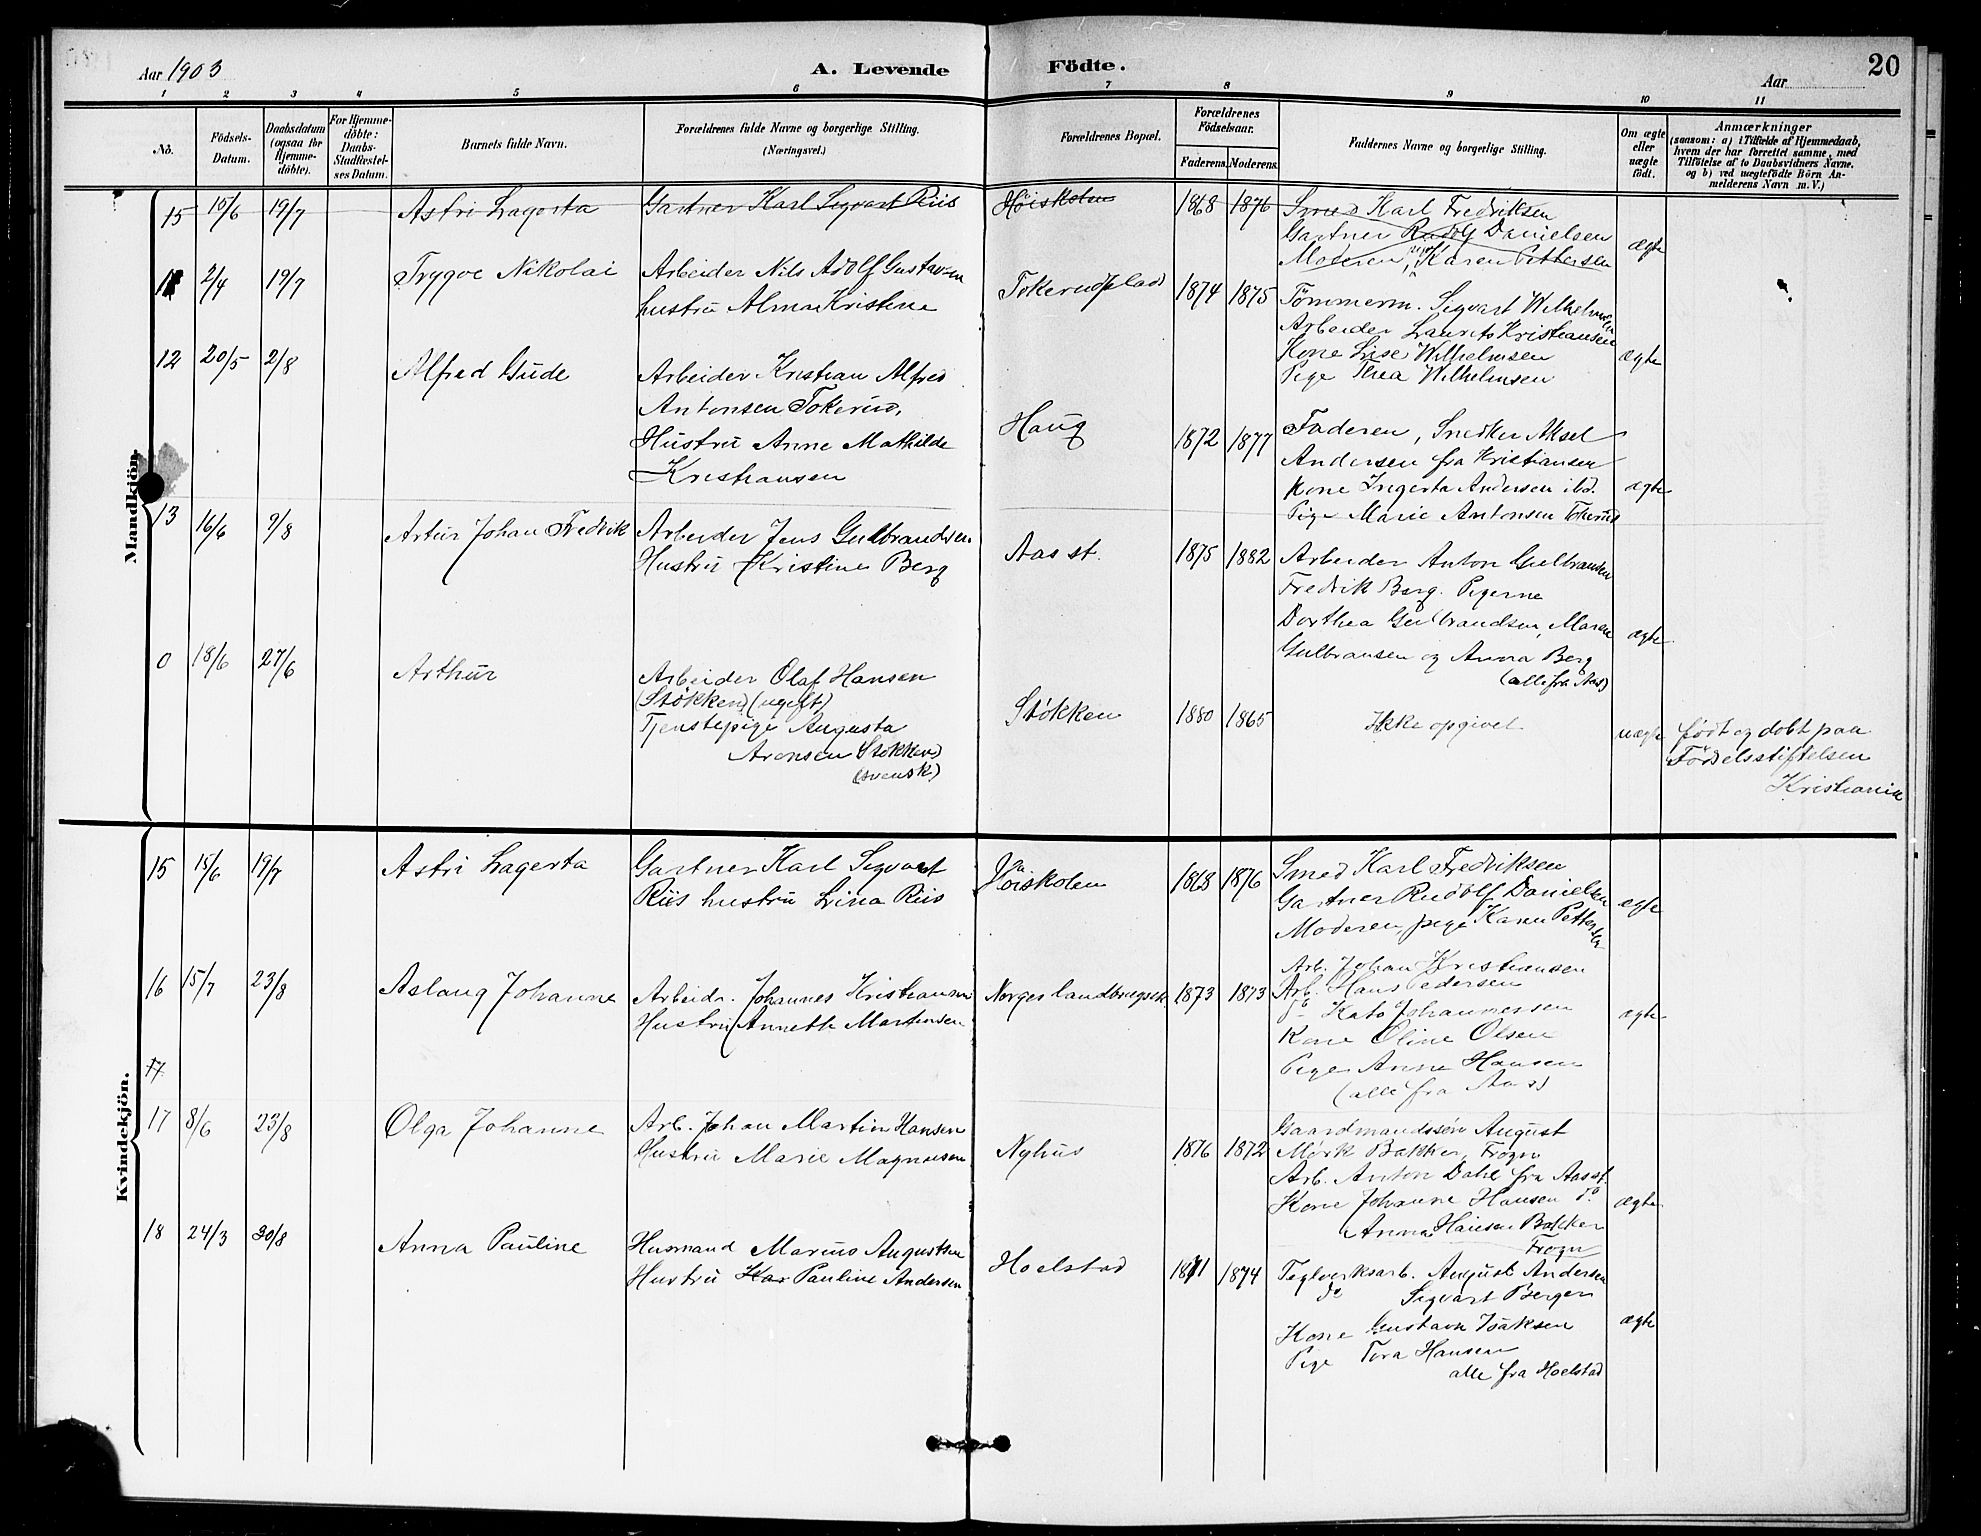 Aar 1903
A. Levende Födte.
Aar
20
1 2 3 4 5 6 7 8 9 10 11
No.
Födsels-Datum.
Daabsdatum (ogsaa for Hjemme-döbte).
For Hjemme-döbte: Daabs-Stadfæstel-ses Datum.
Barnets fulde Navn.
Forældrenes fulde Navne og borgerlige Stilling. (Næringsvei.)
Forældrenes Bopæl.
Forældrenes Födselsaar.
Faderens. Moderens.
Faddernes Navne og borgerlige Stilling.
Om ægte eller uægte födt.
Anmærkninger
(saasom: a) i Tilfælde af Hjemmedaab,
hvem der har forrettet samme, med
Tilföielse af to Daabsvidners Navne.
og b) ved uægtefödte Börn An-
melderens Navn m. V.)
Mandkjön.
15 15/6 19/7 Astri Lagerta Gartner Karl Sigvart Riis Höiskolen 1868 1876 Smed Karl Fredriksen
Gartner Rudolf Danielsen
Moderen, pige Karen Pettersen ægte
11 2/4 19/7 Trygve Nikolai Arbeider Nils Adolf Gustavsen
hustru Alma Kristine
Tokerudplads 1874 1875 Tömmerm. Sigvart Wilhelmsen
Arbeider Laurits Kristiansen
Kone Lise Wilhelmsen
Pige Thea Wilhelmsen ægte
12 20/5 2/8 Alfred Gude Arbeider Kristian Alfred
Antonsen Tokerud,
Hustru Anne Mathilde
Kristiansen
Haug 1872 1877 Faderen, Snedker Aksel
Andersen fra Kristiansen
Kone Ingerta Andersen ibd.
Pige Marie Antonsen Tokerud ægte
13 16/6 9/8 Artur Johan Fredrik Arbeider Jens Gulbrandsen
Hustru Kristine Berg
Aas st. 1875 1882 Arbeider Anton Gulbransen
Fredrik Berg. Pigerne
Dorthea Gulbrandsen, Maren
Gulbransen og Anna Berg
(alle fra Aas) ægte
0 18/6 27/6 Arthur Arbeider Olaf Hansen
(Stökken) (ugift)
Tjenstepige Augusta
Aronsen Stokken)
(svensk)
Stökken 1880 1865 Ikke opgivet uægte födt og döbt paa
Födselsstiftelsen
Kristiania
Kvindekjön.
15 15/6 19/7 Astri Lagerta Gartner Karl Sigvart
Riis hustru Lina Riis
Höiskolen 1868 1876 Smed Karl Fredriksen
Gartner Rudolf Danielsen
Moderen, pige Karen Pettersen ægte
16 15/7 23/8 Aslaug Johanne Arbeidr. Johannes Kristiansen
Hustru Annette Martinsen
Norges landbrugssk. 1873 1873 Arb. Johan Kristiansen
Arb. Hans Pedersen
do Kato Johannessen
Kone Oline Olsen
Pige Anne Hansen
(alle fra Aas) ægte
17
17 8/6 23/8 Olga Johanne Arb. Johan Martin Hansen
Hustru Marie Magnusen
Nyhus 1876 1872 Gaardmandssön August
Mörk Bakker, Frogn
Arb. Anton Dahl fra Aas st.
Kone Johanne Hansen do
Anna Hansen Bakker
Frogn ægte
18 24/3 30/8 Anna Pauline Husmand Marius Augustsen
Hustru Kar Pauline Andersen
Hoelstad 1871 1874 Teglverksarb. August Andersen
do Sigvart Berger
Kone Gustava Isaksen
Pige Tora Hansen
alle fra Hoelstad ægte